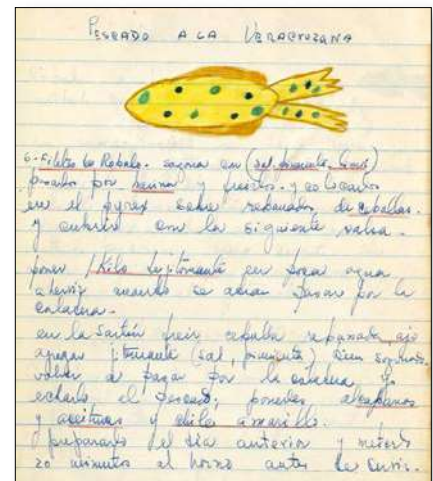 PESCADO A LA VERACRUZANA
6-Filetes de Robalo. sazona en (sal, pimienta, limón)
pasarlos por harina y freirlos. y colocarlos
en el pyrex sobre rebanadas de cebollas.
y cubrir con la siguiente salsa.
poner 1 Kilo de jitomate en poca agua
a hervir cuando se abran pasar por la
coladera.
en la sartén freir cebolla rebanada, ajo
agregar jitomate (sal, pimienta) bien sazonado.
volver a pasar por la coladera y
echarlo al pescado; ponerles alcaparras
y aceitunas y chile amarillo.
prepararlo el día anterior y meterlo
20 minutos al horno antes de servir.